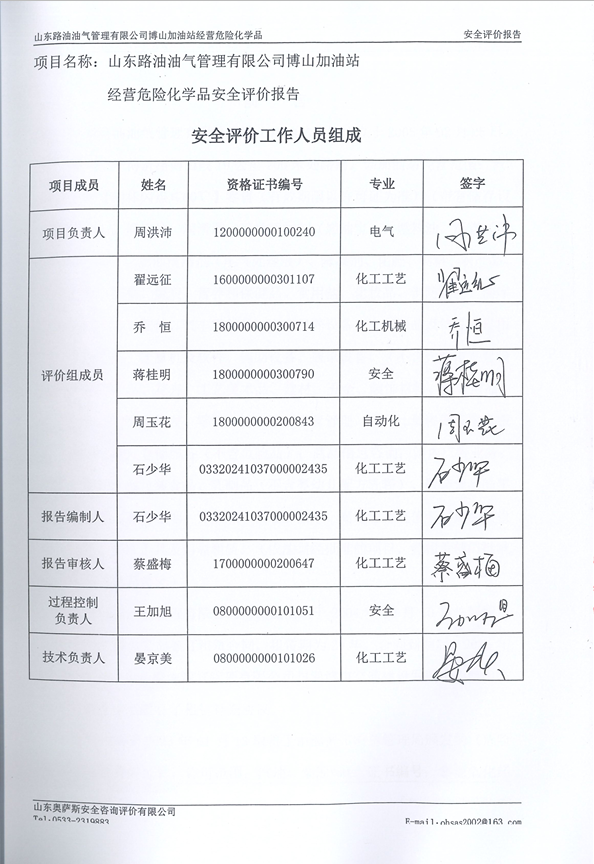 山东路油油气管理有限公司博山加油站经营危险化学品 安全评价报告
项目名称：山东路油油气管理有限公司博山加油站
经营危险化学品安全评价报告
安全评价工作人员组成
项目成员 姓名 资格证书编号 专业 签字
项目负责人 周洪沛 1200000000100240 电气 周洪沛
评价组成员 翟远征 1600000000301107 化工工艺 翟远征
乔 恒 1800000000300714 化工机械 乔恒
蒋桂明 1800000000300790 安全 蒋桂明
周玉花 1800000000200843 自动化 周玉花
石少华 03320241037000002435 化工工艺 石少华
报告编制人 石少华 03320241037000002435 化工工艺 石少华
报告审核人 蔡盛梅 1700000000200647 化工工艺 蔡盛梅
过程控制
负责人 王加旭 0800000000101051 安全 王加旭
技术负责人 晏京美 0800000000101026 化工工艺
山东奥萨斯安全咨询评价有限公司
Tel:0533-2319883 E-mail:ohsas2002@163.com